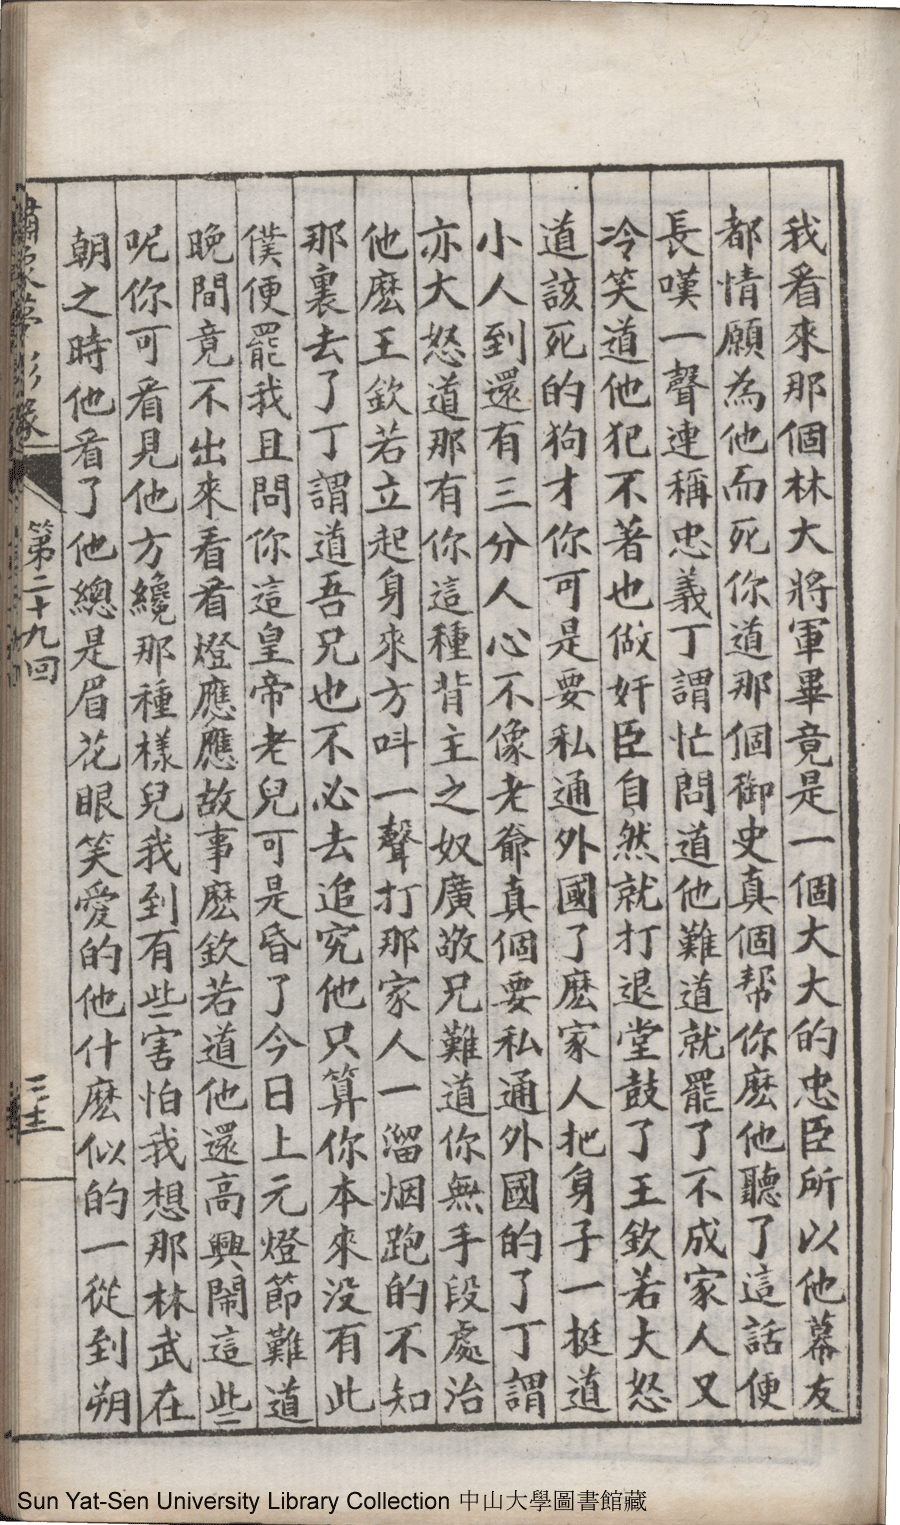 我看來那個林大將軍畢竟是一個大大的忠臣所以他幕友
都情願為他而死你道那個御史真個帮你麽他聽了這話便
長嘆一聲連稱忠義丁謂忙問道他難道就罷了不成家人又
冷笑道他犯不著也做奸臣自然就打退堂鼓了王欽若大怒
道該死的狗才你可是要私通外國了麽家人把身子一挺道
小人到還有三分人心不像老爺真個要私通外國的了丁謂
亦大怒道那有你這種背主之奴廣敬兄難道你無手段處治
他麽王欽若立起身來方呌一聲打那家人一溜烟跑的不知
那裏去了丁謂道吾兄也不必去追究他只算你本來没有此
僕便罷我且問你這皇帝老兒可是昏了今日上元燈節難道
晚間竟不出來看看燈應應故事麽欽若道他還高興鬧這些
呢你可看見他方纔那種樣兒我到有些害怕我想那林武在
朝之時他看了他總是眉花眼笑愛的他什麽似的一從到朔
繡像夢影緣
第二十九回
Sun Yat-Sen University Library Collection 中山大學圖書館藏